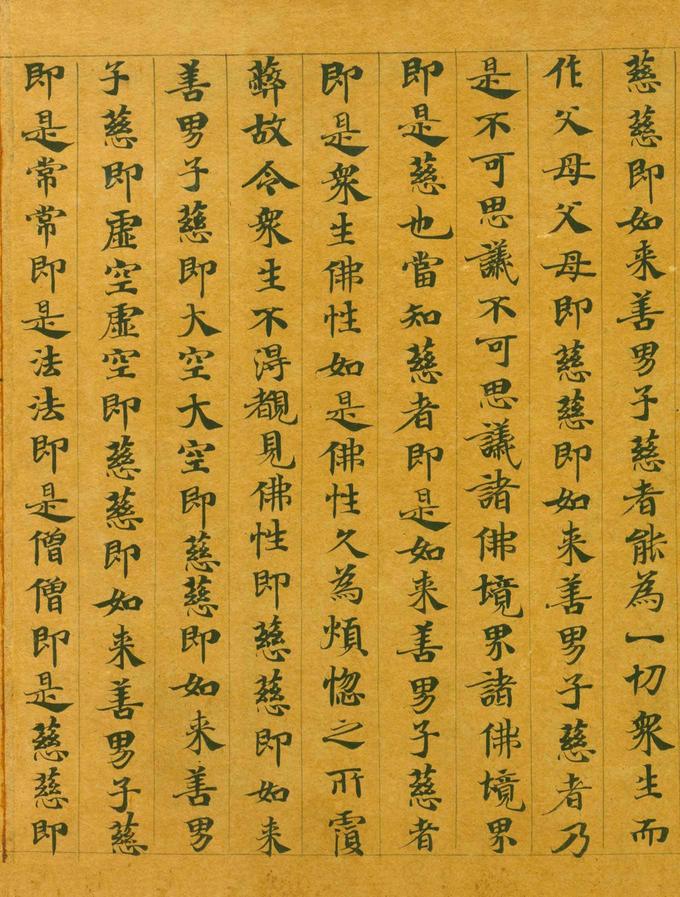 慈慈即如来善男子慈者能為一切衆生而
作父母父母即慈慈即如来善男子慈者乃
是不可思議不可思議諸佛境界諸佛境界
即是慈也當知慈者即是如来善男子慈者
即是衆生佛性如是佛性久為煩惚之所覆
蔽故令衆生不得覩見佛性即慈慈即如来
善男子慈即大空大空即慈慈即如来善男
子慈即虚空虚空即慈慈即如来善男子慈
即是常常即是法法即是僧僧即是慈慈即